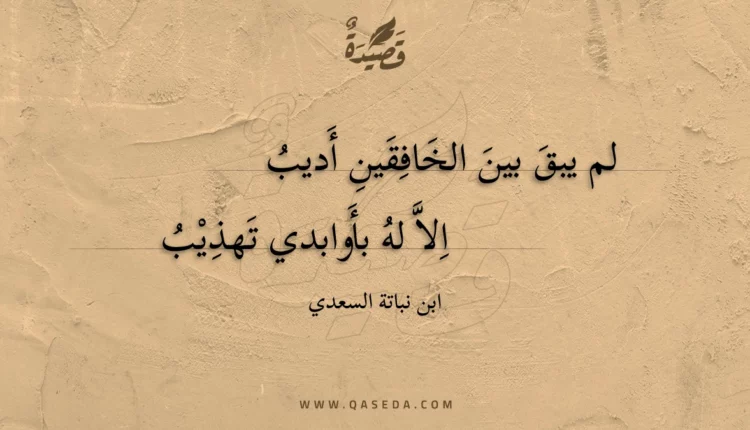 قَصِيدَةٌ
لم يبقَ بينَ الخَافِقَينِ أَديبُ
اِلاَّ لهُ بأَوابدي تَهذِيْبُ
ابن نباتة السعدي
WWW.QASEDA.COM